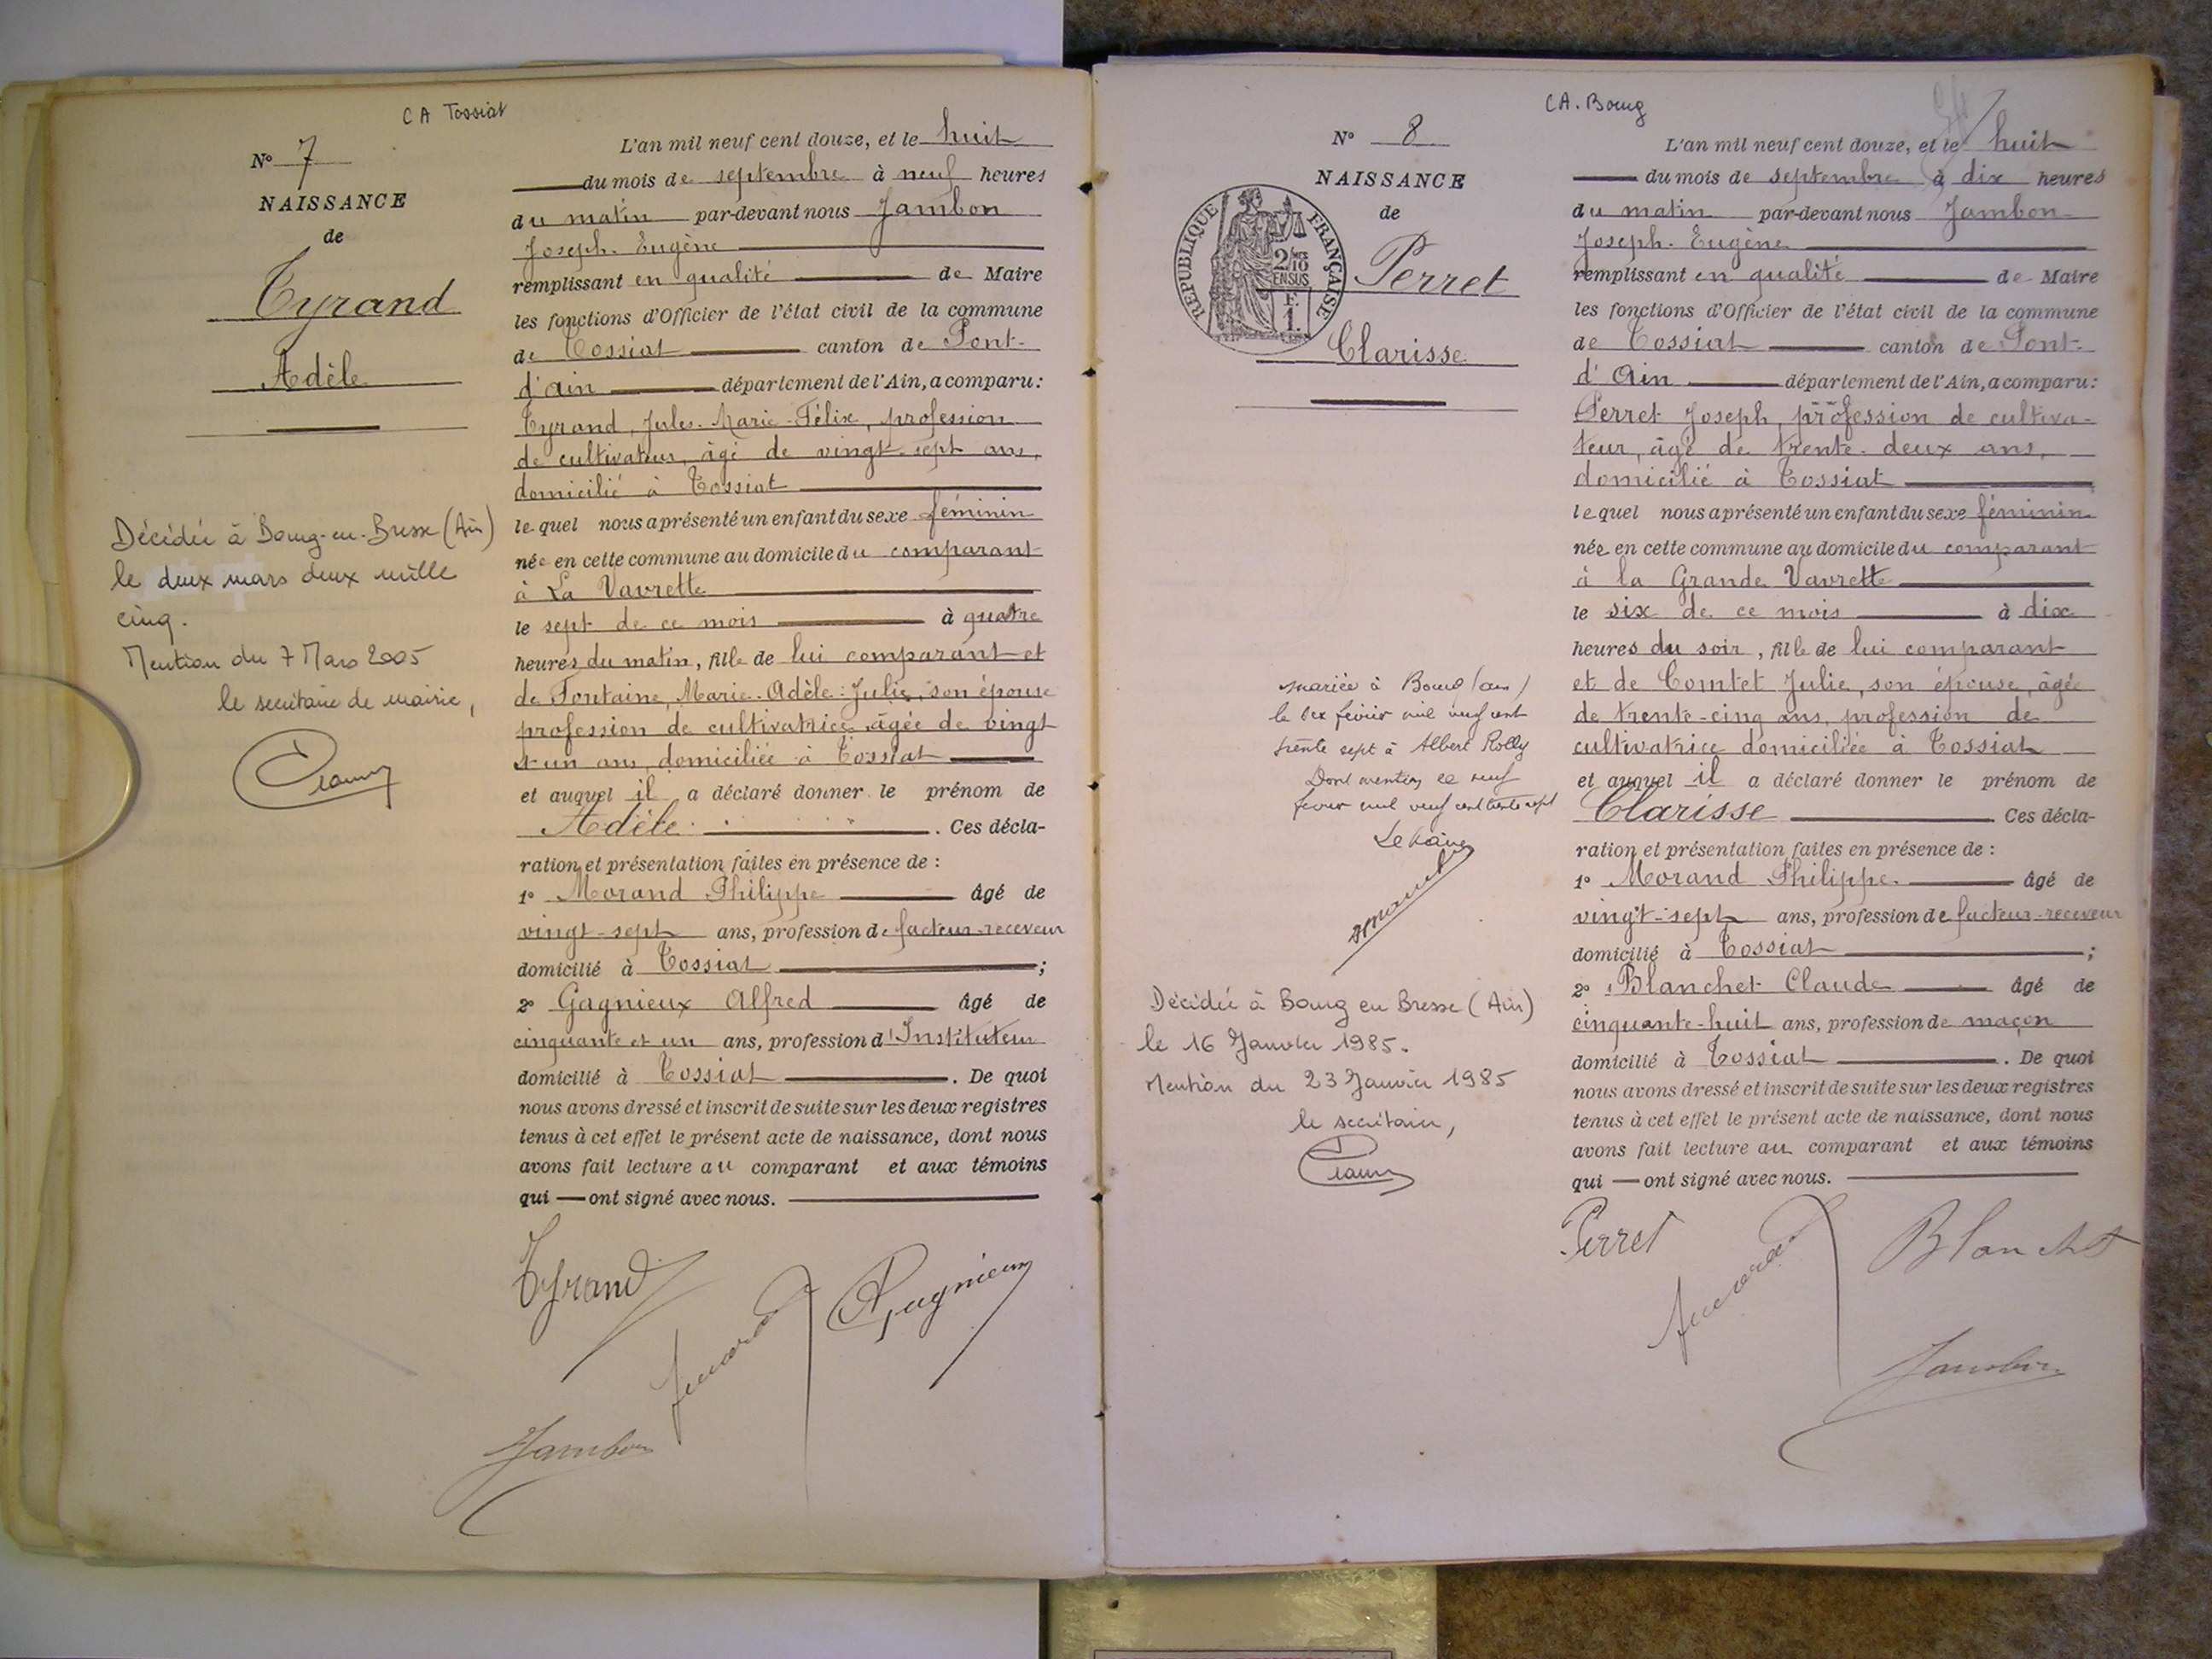 CA Tossiat
N° 7
NAISSANCE
de
Tyrand
Adèle
Décédée à Bourg-en-Bresse (Ain)
le deux mars deux mille
cinq.
Mention du 7 Mars 2005
le secrétaire de mairie,
L'an mil neuf cent douze, et le huit
du mois de septembre à neuf heures
du matin par-devant nous Jambon
Joseph-Eugène
remplissant en qualité de Maire
les fonctions d'Officier de l'état civil de la commune
de Tossiat canton de Pont-
d'ain département de l'Ain, a comparu :
Tyrand, Jules-Marie-Félix, profession
de cultivateur, âgé de vingt-sept ans,
domicilié à Tossiat
lequel nous a présenté un enfant du sexe féminin
née en cette commune au domicile du comparant
à La Vavrette
le sept de ce mois à quatre
heures du matin, fille de lui comparant et
de Fontaine, Marie-Adèle-Julie, son épouse
profession de cultivatrice, âgée de vingt
et un ans, domiciliée à Tossiat
et auquel il a déclaré donner le prénom de
Adèle. Ces décla-
ration et présentation faites en présence de :
1° Morand Philippe âgé de
vingt-sept ans, profession de facteur-receveur
domicilié à Tossiat ;
2° Gagnieux Alfred âgé de
cinquante et un ans, profession d'Instituteur
domicilié à Tossiat . De quoi
nous avons dressé et inscrit de suite sur les deux registres
tenus à cet effet le présent acte de naissance, dont nous
avons fait lecture au comparant et aux témoins
qui — ont signé avec nous.
Tyrand
Gagnieux
Jambon
CA. Bourg
N° 8
NAISSANCE
de
REPUBLIQUE FRANÇAISE
2/10 EN SUS
F. 1.
Perret
Clarisse
mariée à Bourg (ain)
le six février mil neuf cent
trente sept à Albert Rolly
Dont mention le neuf
février mil neuf cent trente sept
Le Maire
Décédée à Bourg en Bresse (Ain)
le 16 Janvier 1985.
Mention du 23 Janvier 1985
le secrétaire,
L'an mil neuf cent douze, et le huit
du mois de septembre à dix heures
du matin par-devant nous Jambon
Joseph-Eugène
remplissant en qualité de Maire
les fonctions d'Officier de l'état civil de la commune
de Tossiat canton de Pont-
d'Ain département de l'Ain, a comparu :
Perret Joseph, profession de cultiva-
teur, âgé de trente-deux ans,
domicilié à Tossiat
lequel nous a présenté un enfant du sexe féminin
née en cette commune au domicile du comparant
à la Grande Vavrette
le six de ce mois à dix
heures du soir, fille de lui comparant
et de Comtet Julie, son épouse, âgée
de trente-cinq ans, profession de
cultivatrice domiciliée à Tossiat
et auquel il a déclaré donner le prénom de
Clarisse Ces décla-
ration et présentation faites en présence de :
1° Morand Philippe. âgé de
vingt-sept ans, profession de facteur-receveur
domicilié à Tossiat ;
2° Blanchet Claude âgé de
cinquante-huit ans, profession de maçon
domicilié à Tossiat . De quoi
nous avons dressé et inscrit de suite sur les deux registres
tenus à cet effet le présent acte de naissance, dont nous
avons fait lecture au comparant et aux témoins
qui — ont signé avec nous.
Perret
Blanchet
Jambon